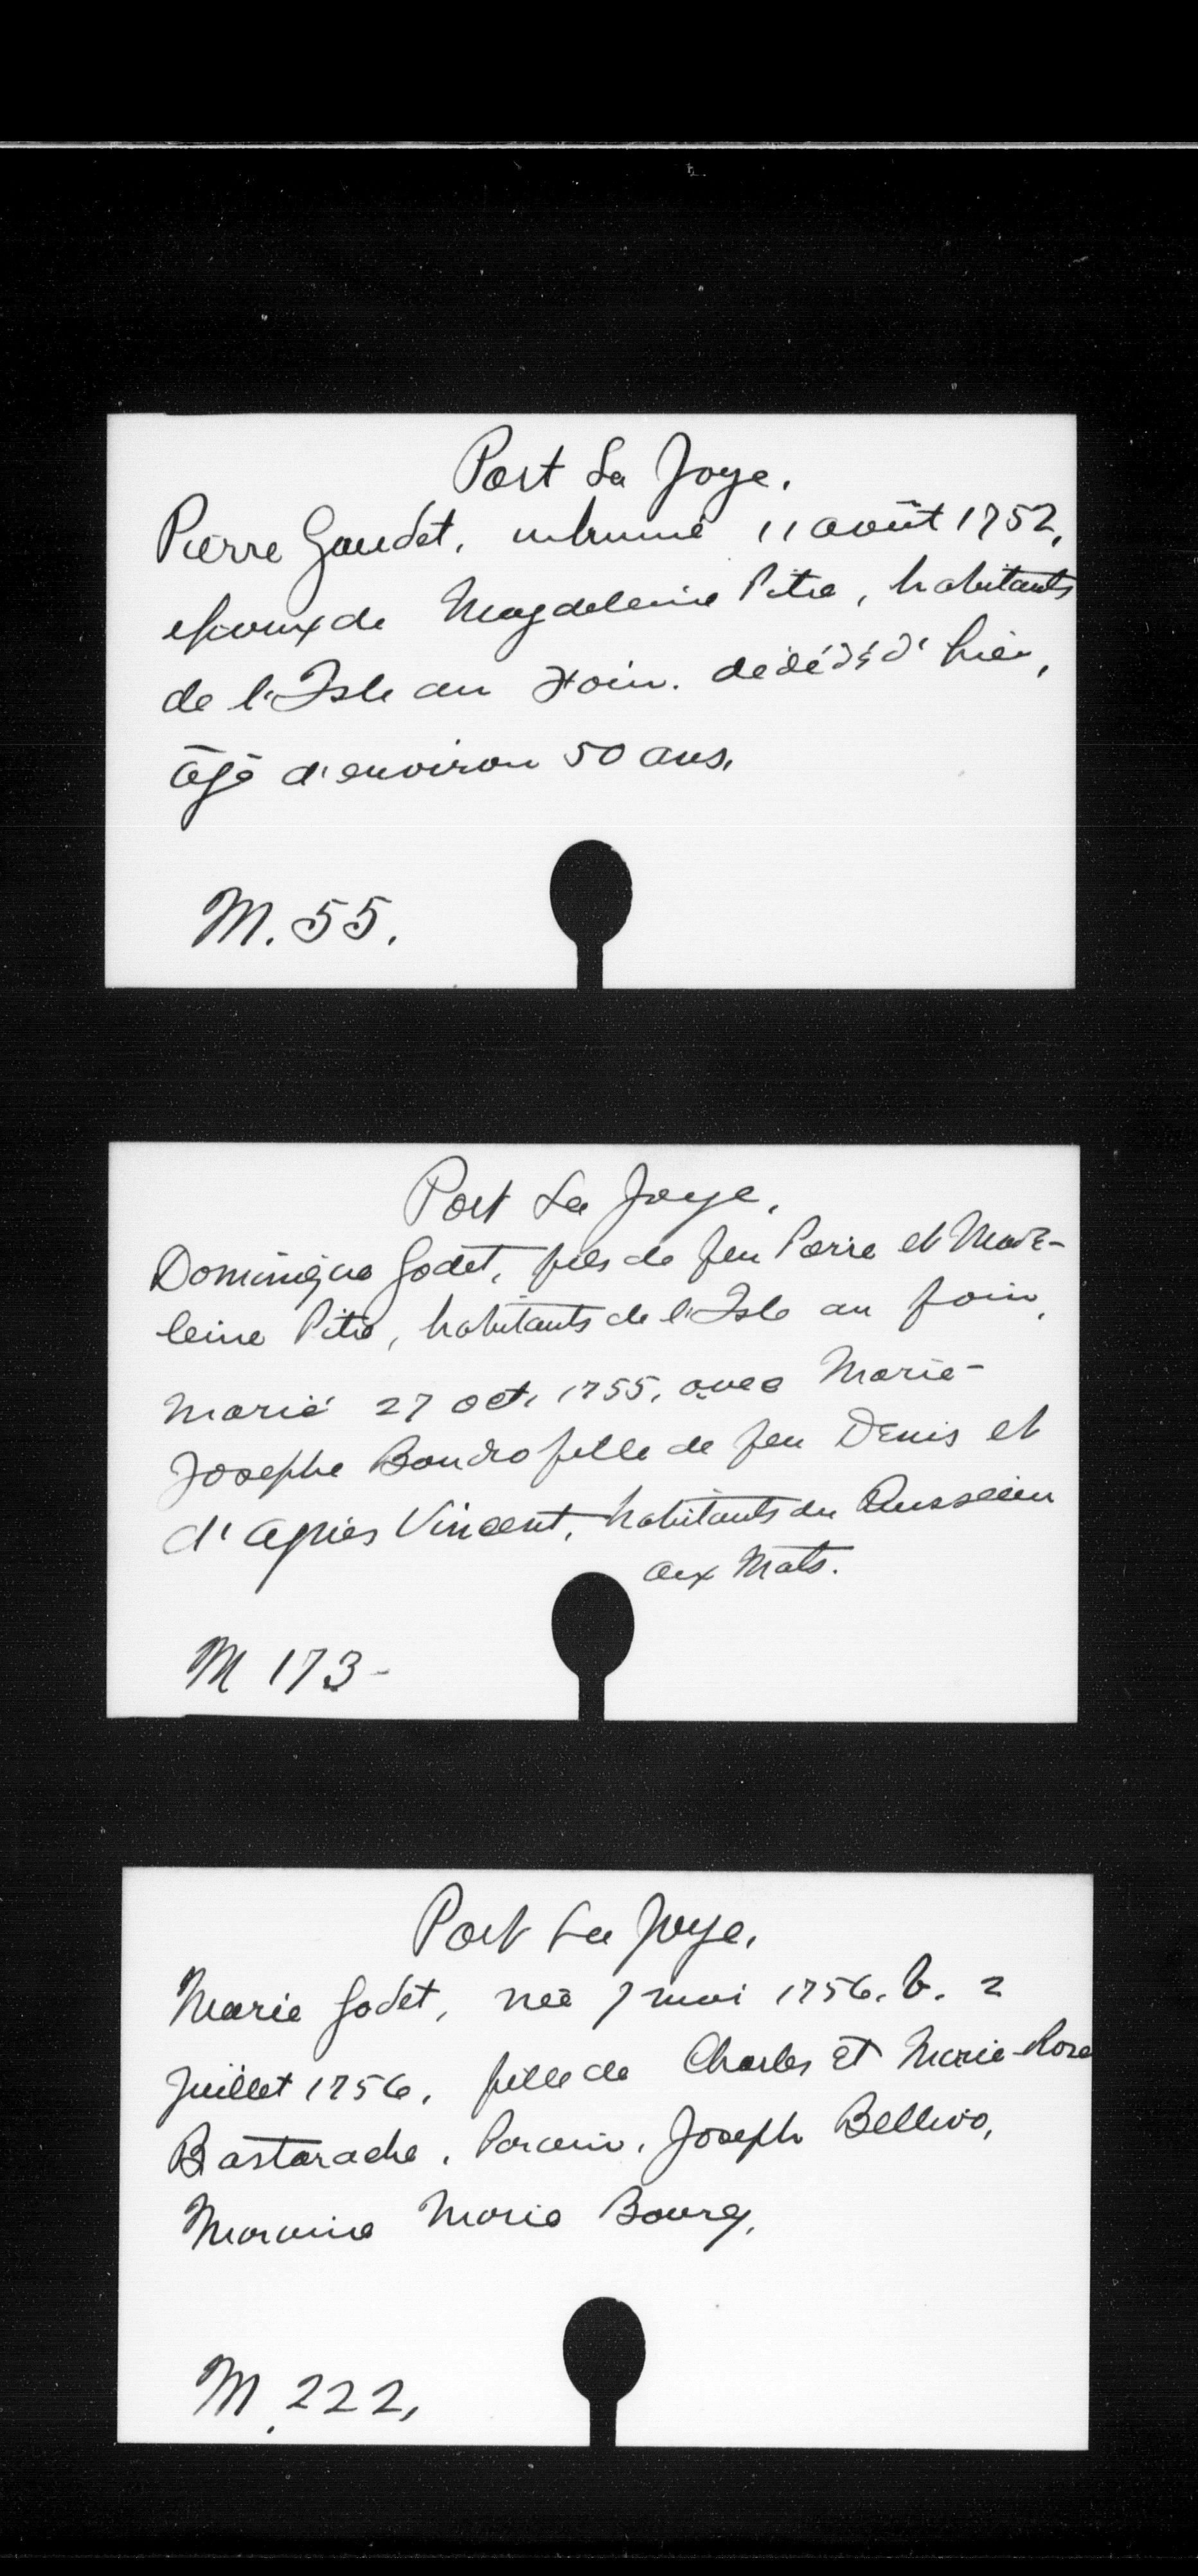 Port La Joye.
Pierre Gaudet, inhumé 11 août 1752,
époux de Magdeleine Pitre, habitants
de l'Isle au Foin. décédé d'hier,
âgé d'environ 50 ans.
M. 55.
Port La Joye.
Dominique Godet, fils de feu Pierre et Made-
leine Pitre, habitants de l'Isle au foin,
marié 27 oct. 1755, avec Marie-
Josephe Boudro fille de feu Denis et
d'Agnès Vincent, habitants du Ruisseau
aux Mats.
M 173-
Port La Joye.
Marie Godet, née 7 mai 1756. b. 2
Juillet 1756, fille de Charles et Marie-Rose
Bastarache. Parain, Joseph Bellivo,
Maraine Marie Bourg.
M. 222,